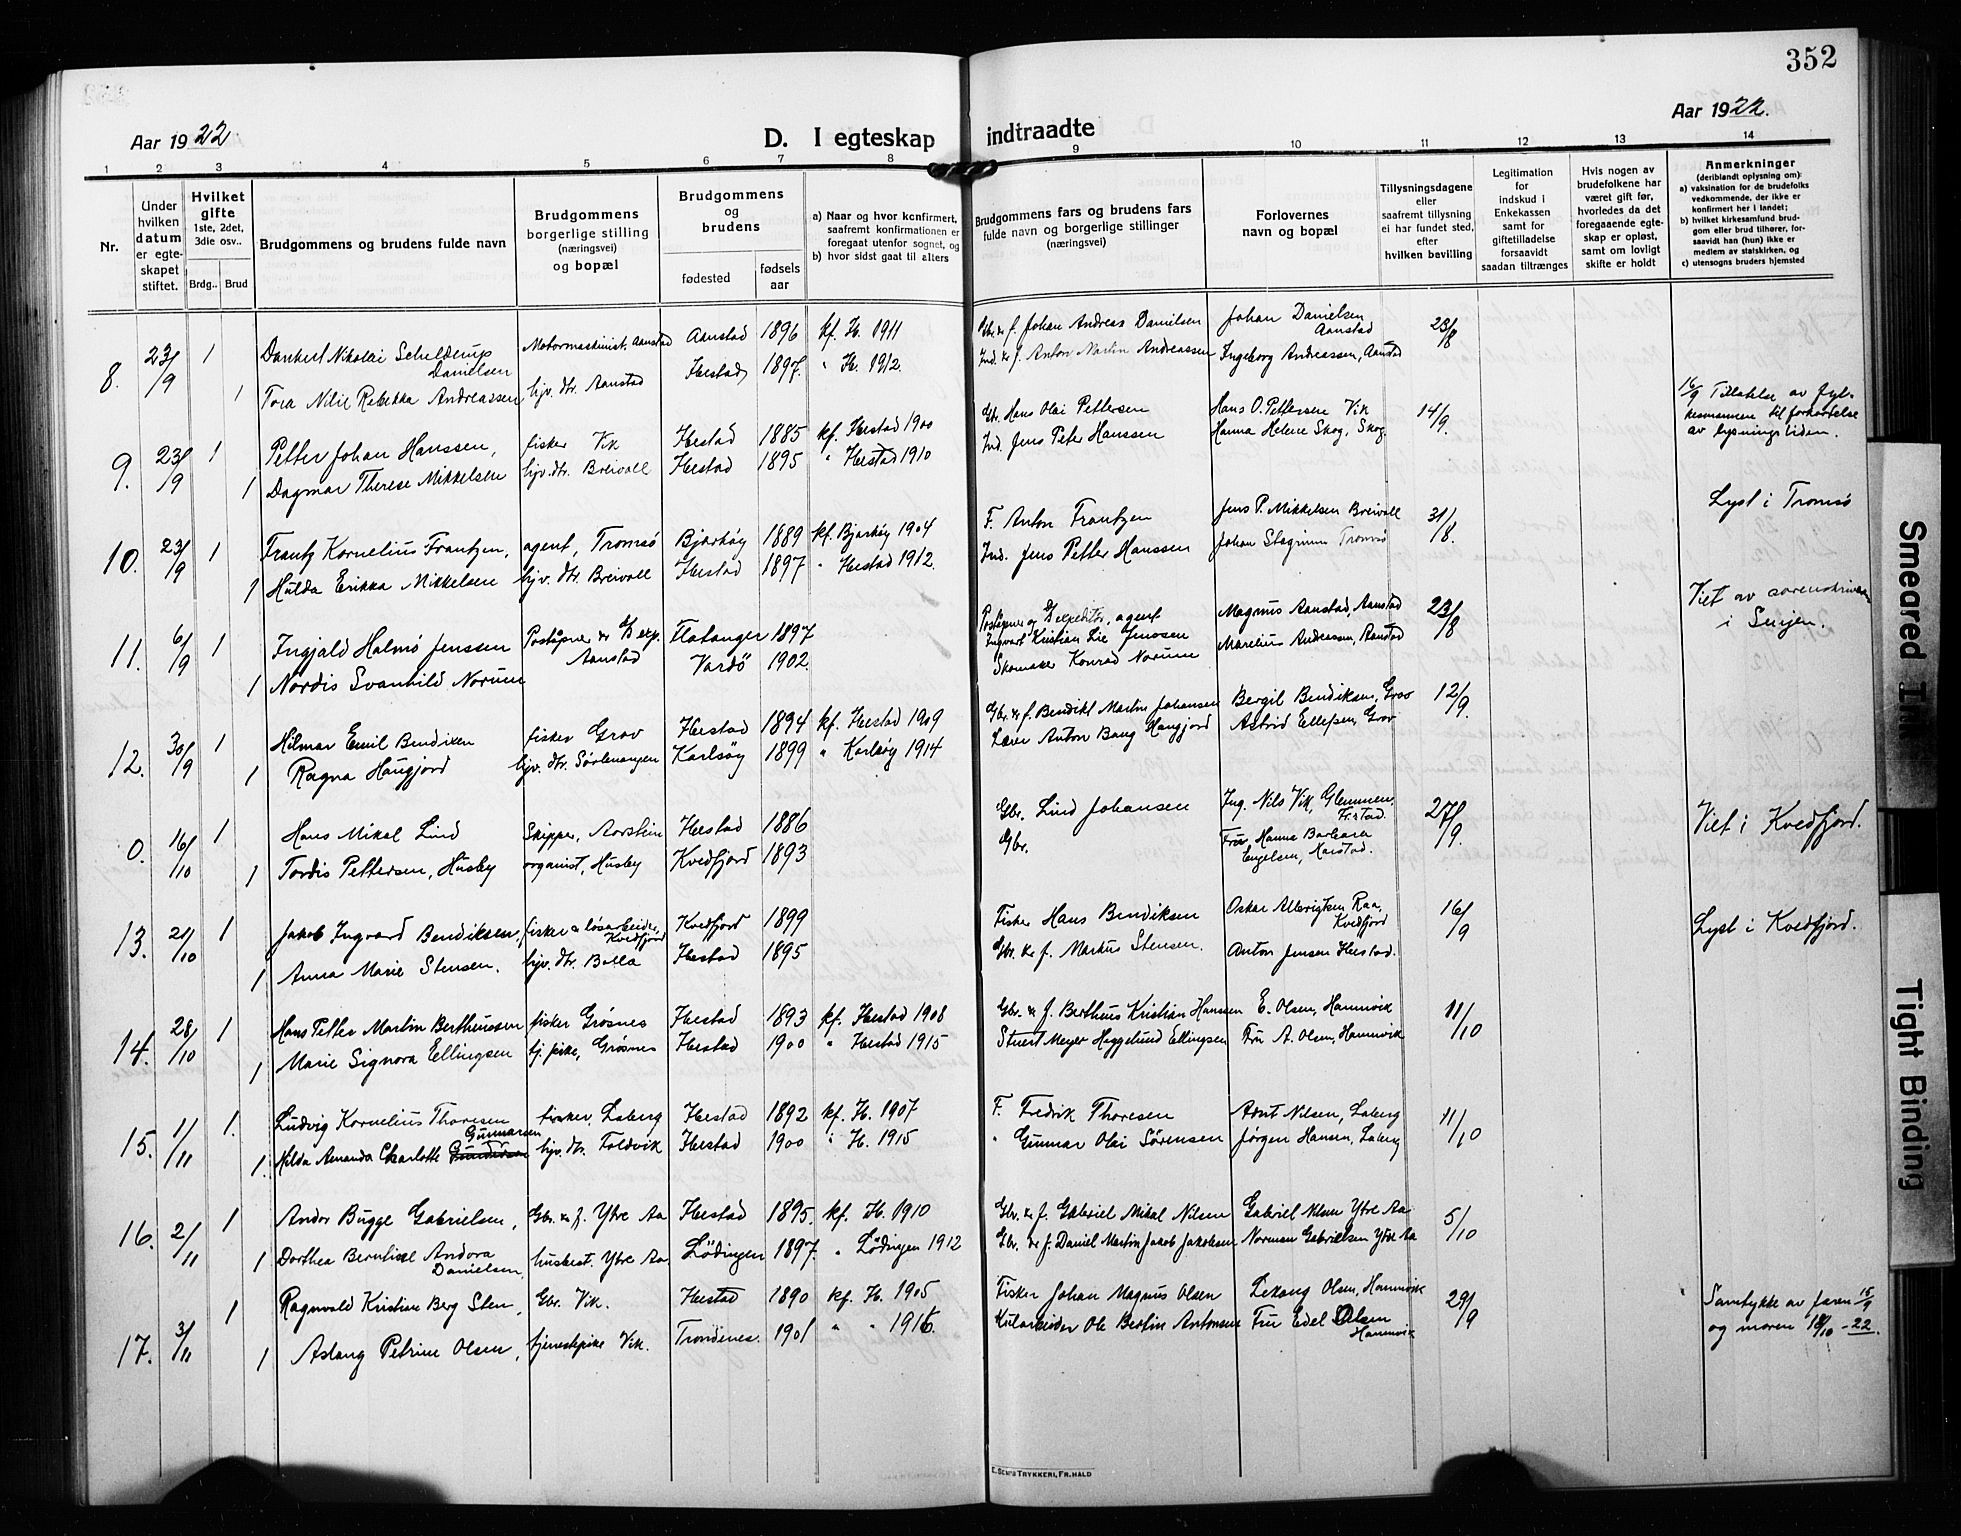 352
Aar 1922
D. I egteskap indtraadte
Aar 1922.
1 2 3 4 5 6 7 8 9 10 11 12 13 14
Nr.
Under hvilken datum er egteskapet stiftet.
Hvilket gifte 1ste, 2det, 3die osv..
Brdg.. Brud
Brudgommens og brudens fulde navn
Brudgommens borgerlige stilling (næringsvei) og bopæl
Brudgommens og brudens
fødested
fødsels aar
a) Naar og hvor konfirmert, saafremt konfirmationen er foregaat utenfor sognet, og
b) hvor sidst gaat til alters
Brudgommens fars og brudens fars fulde navn og borgerlige stillinger (næringsvei)
Forlovernes navn og bopæl
Tillysningsdagene eller saafremt tillysning ei har fundet sted, efter hvilken bevilling
Legitimation for indskud i Enkekassen samt for giftetilladelse forsaavidt saadan tiltrænges
Hvis nogen av brudefolkene har været gift før, hvorledes da det foregaaende egteskap er opløst, samt om lovligt skifte er holdt
Anmerkninger (deriblandt oplysning om):
a) vaksination for de brudefolks vedkommende, der ikke er konfirmert her i landet;
b) hvilket kirkesamfund brudgom eller brud tilhører, forsaavidt han (hun) ikke er medlem av statskirken, og
c) utensogns bruders hjemsted
8. 23/9 1 Dankert Nikolai Schelderup Danielsen Motormaskinist, Aanstad Aanstad 1896 kf. H. 1911 Gbr. & f. Johan Andreas Danielsen Johan Danielsen Aanstad 23/8
1 Tora Nilie Rebekka Andreassen hjv. dtr. Aanstad Ibestad 1897. " H. 1912. Ind. & f. Anton Martin Andreassen Ingeborg Andreassen, Aanstad
9. 23/9 1 Petter Johan Hanssen, fisker Vik Ibestad 1885 kf. Ibestad 1900 Gbr. Hans Olai Pettersen Hans O. Pettersen Vik 14/9. 16/9 Tillatelse av fylkesmannen til forkortelse av lysningstiden.
1 Dagmar Therese Mikkelsen hjv. dtr. Breivoll Ibestad 1895 " Ibestad 1910 Ind. Jens Peter Hanssen Hanna Helene Skog, Skog
10. 23/9 1 Frantz Kornelius Frantzen, agent, Tromsö Bjarköy 1889 kf. Bjarköy 1904 F. Anton Frantzen Jens P. Mikkelsen Breivoll 31/8. Lyst i Tromsö
1 Hulda Erikka Mikkelsen hjv. dtr. Breivoll Ibestad 1897 " Ibestad 1912. Ind. Jens Petter Hanssen Johan Tromsö
11. 6/9 1 Ingjald Holmö Jenssen Postaapner & Dexp. Aanstad Flatanger 1897 Postaapner og Dexpeditör, agent Ingvart Kristian Lie Jenssen Magnus Aanstad, Aanstad 23/8 Viet av sorenskriveren i Senjen.
1 Nordis Svanhild Norum Vardö 1902. Skomaker Konrad Norum Marelius Andreassen, Aanstad
12. 30/9 1 Hilmar Emil Bendiksen fisker Grov Ibestad 1894 kf. Ibestad 1909 Gbr. & f. Bendikt Martin Johansen Bergit Bendiksen, Grov 12/9.
1 Ragna Haugjord hjv. dtr. Sörlenangen Karlsöy 1899 " Karlsöy 1914 Lærer Anton Bang Haugjord Astrid Ellefsen, Grov
0. 16/10 1 Hans Mikal Lind Skipper, Aarstein Ibestad 1886 Gbr. Lind Johansen Ing. Nils Vik, Glemmen, Fr.stad. 27/9. Viet i Kvedfjord.
1 Tordis Pettersen, Husby organist, Husby Kvedfjord 1893 Gbr. Fru Hanna Barbara Engelsen, Harstad.
13. 21/10 1 Jakob Ingvard Bendiksen, fisker & løsarbeider, Kvedfjord Kvedfjord 1899 Fisker Hans Bendiksen Oskar Albrigtsen Raa, Kvedfjord 16/9 Lyst i Kvedfjord.
1 Anna Marie Stensen. hjv. dtr. Bolla Ibestad 1895 Gbr. & f. Markus Stensen. Anton Jensen Ibestad.
14. 28/10 1 Hans Petter Martin Bertheussen fisker Grøsnes Ibestad 1893 kf. Ibestad 1908 Gbr. & f. Bertheus Kristian Hanssen E. Olsen, Hamnvik 11/10
1 Marie Signora Ellingsen tj. pike, Grøsnes Ibestad 1900 " Ibestad 1915 Stuert Meyer Heggelund Ellingsen Fru A. Olsen, Hamnvik
15. 1/11 1. Ludvig Kornelius Thoresen fisker, Laberg Ibestad 1892 kf. H. 1907 F. Fredrik Thoresen Arnt Nilsen, Laberg 11/10
1. Hilda Amanda Charlotte Gunnarsen hjv. dtr. Foldvik Ibestad 1900 " H. 1915 " Gunnar Olai Sörensen Jørgen Hansen, Laberg
16. 2/11 1 Andor Bugge Gabrielsen, Gbr. & f. Ytre Aa Ibestad 1895. kf. H. 1910 Gbr. & f. Gabriel Mikal Nilsen Gabriel Nilsen Ytre Aa 5/10
1 Dorthea Berntine Andora Danielsen, husbest. Ytre Aa Lödingen 1897. " Lödingen 1912 Gbr. & f. Daniel Martin Jakob Jakobsen Norman Gabrielsen Ytre Aa
17. 3/11 1 Ragnvald Kristian Berg Sten, Gbr. Vik. Ibestad 1890 kf. H. 1905 Fisker Johan Magnus Olsen Olsen, Hamnvik 29/9 Samtykke av faren 15/9 og moren 18/10 - 22.
1 Aslaug Petrine Olsen, tjenestepike Vik. Trondenes. 1901 " " 1916. Ole Bertin Antonsen Fru Edel Olsen Hamnvik
E. SEM'S TRYKKERI, FR.HALD
Smeared Ink
Tight Binding